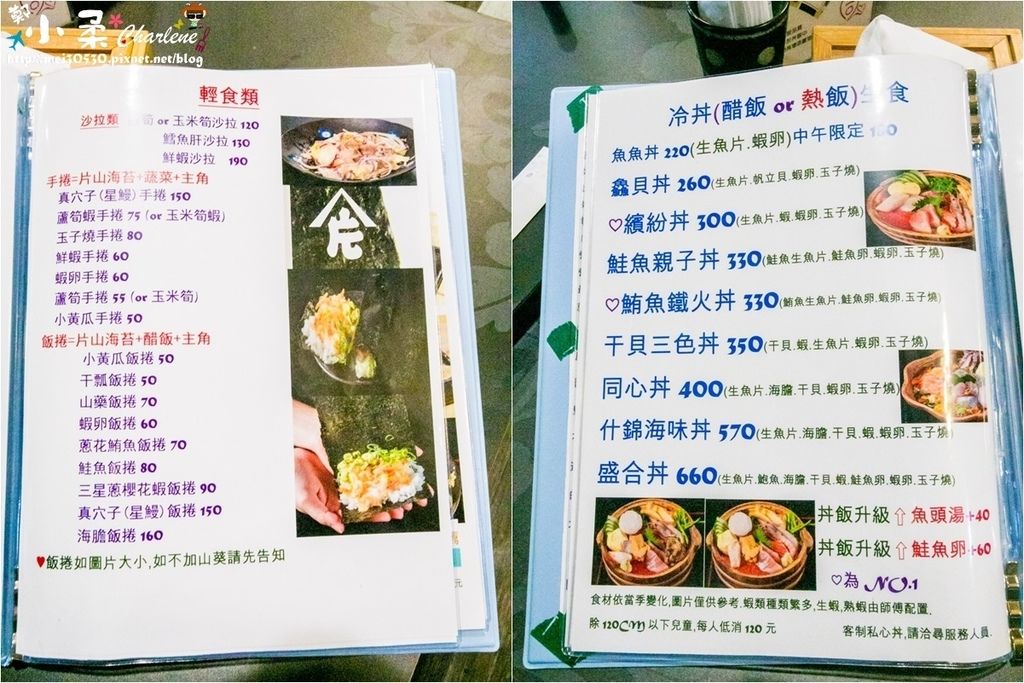 鄭小柔*Charlene
http://mei30530.pixnet.net/blog
輕食類
沙拉類 筍 or 玉米筍沙拉 120
鱈魚肝沙拉 130
鮮蝦沙拉 190
手捲=片山海苔+蔬菜+主角
真穴子(星鰻)手捲 150
蘆筍蝦手捲 75 (or 玉米筍蝦)
玉子燒手捲 80
鮮蝦手捲 60
蝦卵手捲 60
蘆筍手捲 55 (or 玉米筍)
小黃瓜手捲 50
飯捲=片山海苔+醋飯+主角
小黃瓜飯捲 50
干瓢飯捲 50
山藥飯捲 70
蝦卵飯捲 60
蔥花鮪魚飯捲 70
鮭魚飯捲 80
三星蔥櫻花蝦飯捲 90
真穴子(星鰻)飯捲 150
海膽飯捲 160
♥飯捲如圖片大小,如不加山葵請先告知
片
冷丼(醋飯 or 熱飯)生食
魚魚丼 220(生魚片.蝦卵)中午限定
鱻貝丼 260(生魚片.帆立貝.蝦卵.玉子燒)
♡繽紛丼 300(生魚片.蝦.蝦卵.玉子燒)
鮭魚親子丼 330(鮭魚生魚片.鮭魚卵.蝦卵.玉子燒)
♡鮪魚鐵火丼 330(鮪魚生魚片.鮭魚卵.蝦卵.玉子燒)
干貝三色丼 350(干貝.蝦.生魚片.蝦卵.玉子燒)
同心丼 400(生魚片.海膽.干貝.蝦卵.玉子燒)
什錦海味丼 570(生魚片.海膽.干貝.蝦.蝦卵.玉子燒)
盛合丼 660(生魚片.鮑魚.海膽.干貝.蝦.鮭魚卵.蝦卵.玉子燒)
丼飯升級⇧魚頭湯+40
丼飯升級⇧鮭魚卵+60
♡為 NO.1
食材依當季變化,圖片僅供參考.蝦類種類繁多,生蝦,熟蝦由師傅配置.
除 120CM 以下兒童,每人低消 120 元 客制私心丼,請洽尋服務人員.